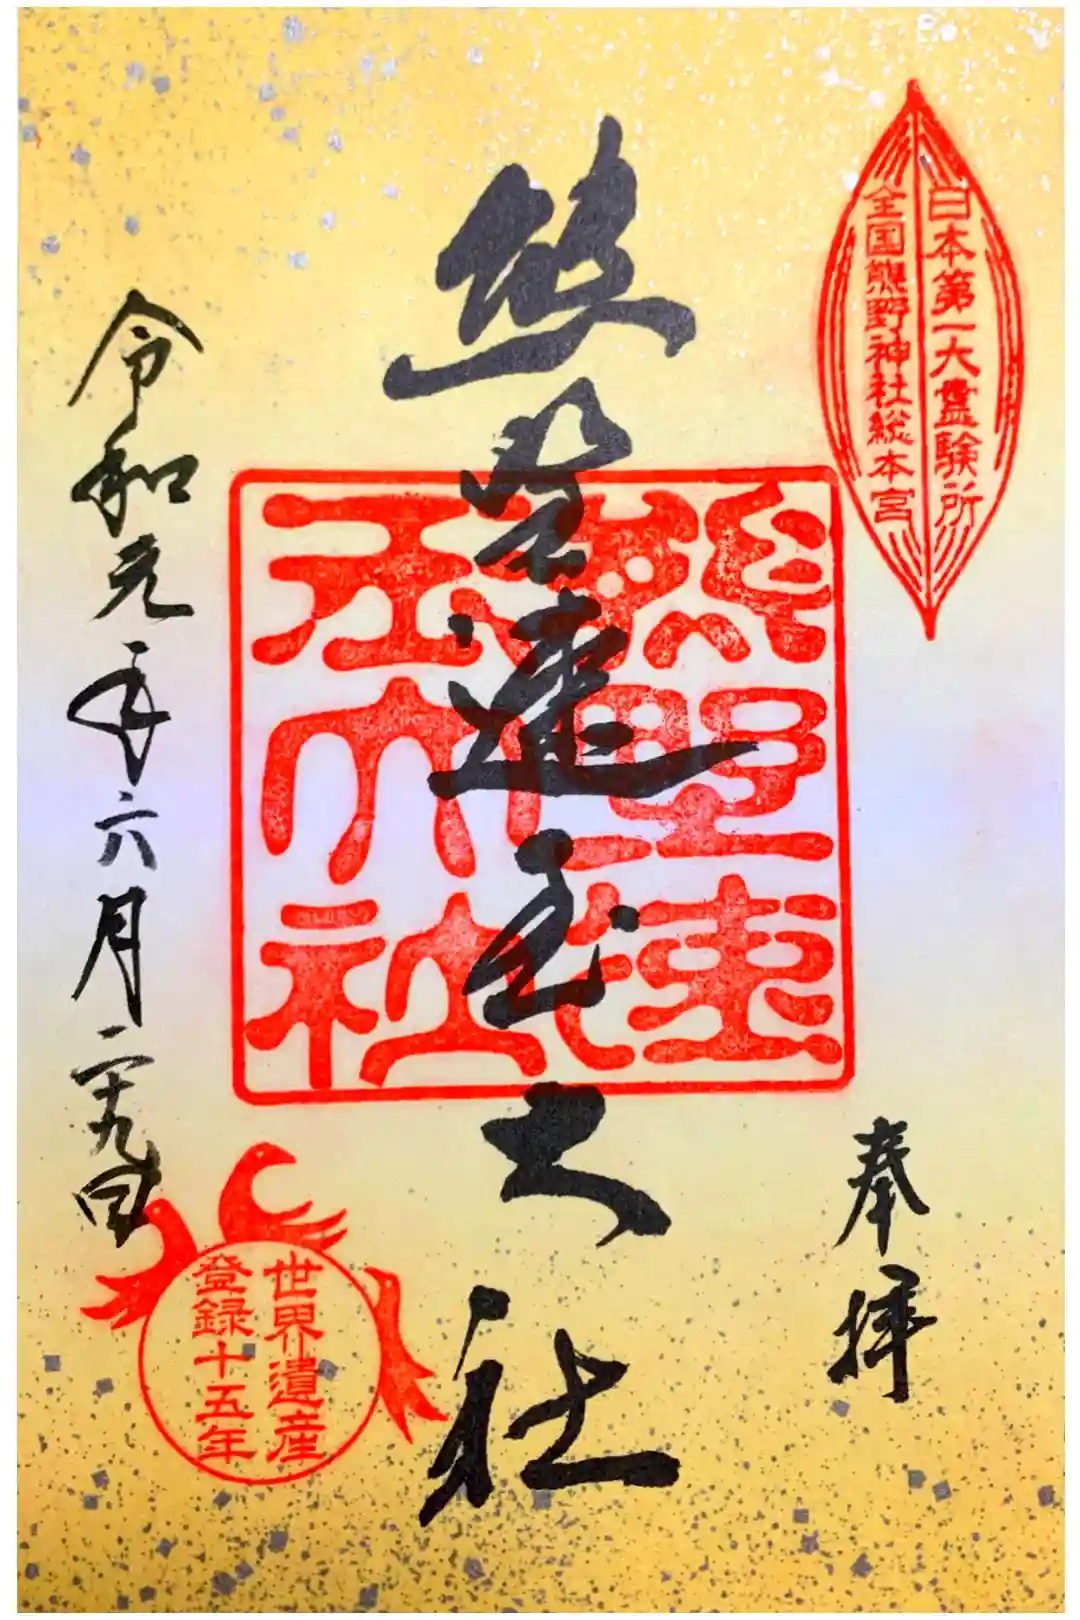 日本第一大霊験所
全国熊野神社総本宮
奉拝
熊野速玉大社
熊野速玉大社
世界遺産
登録十五年
令和元年六月二十九日